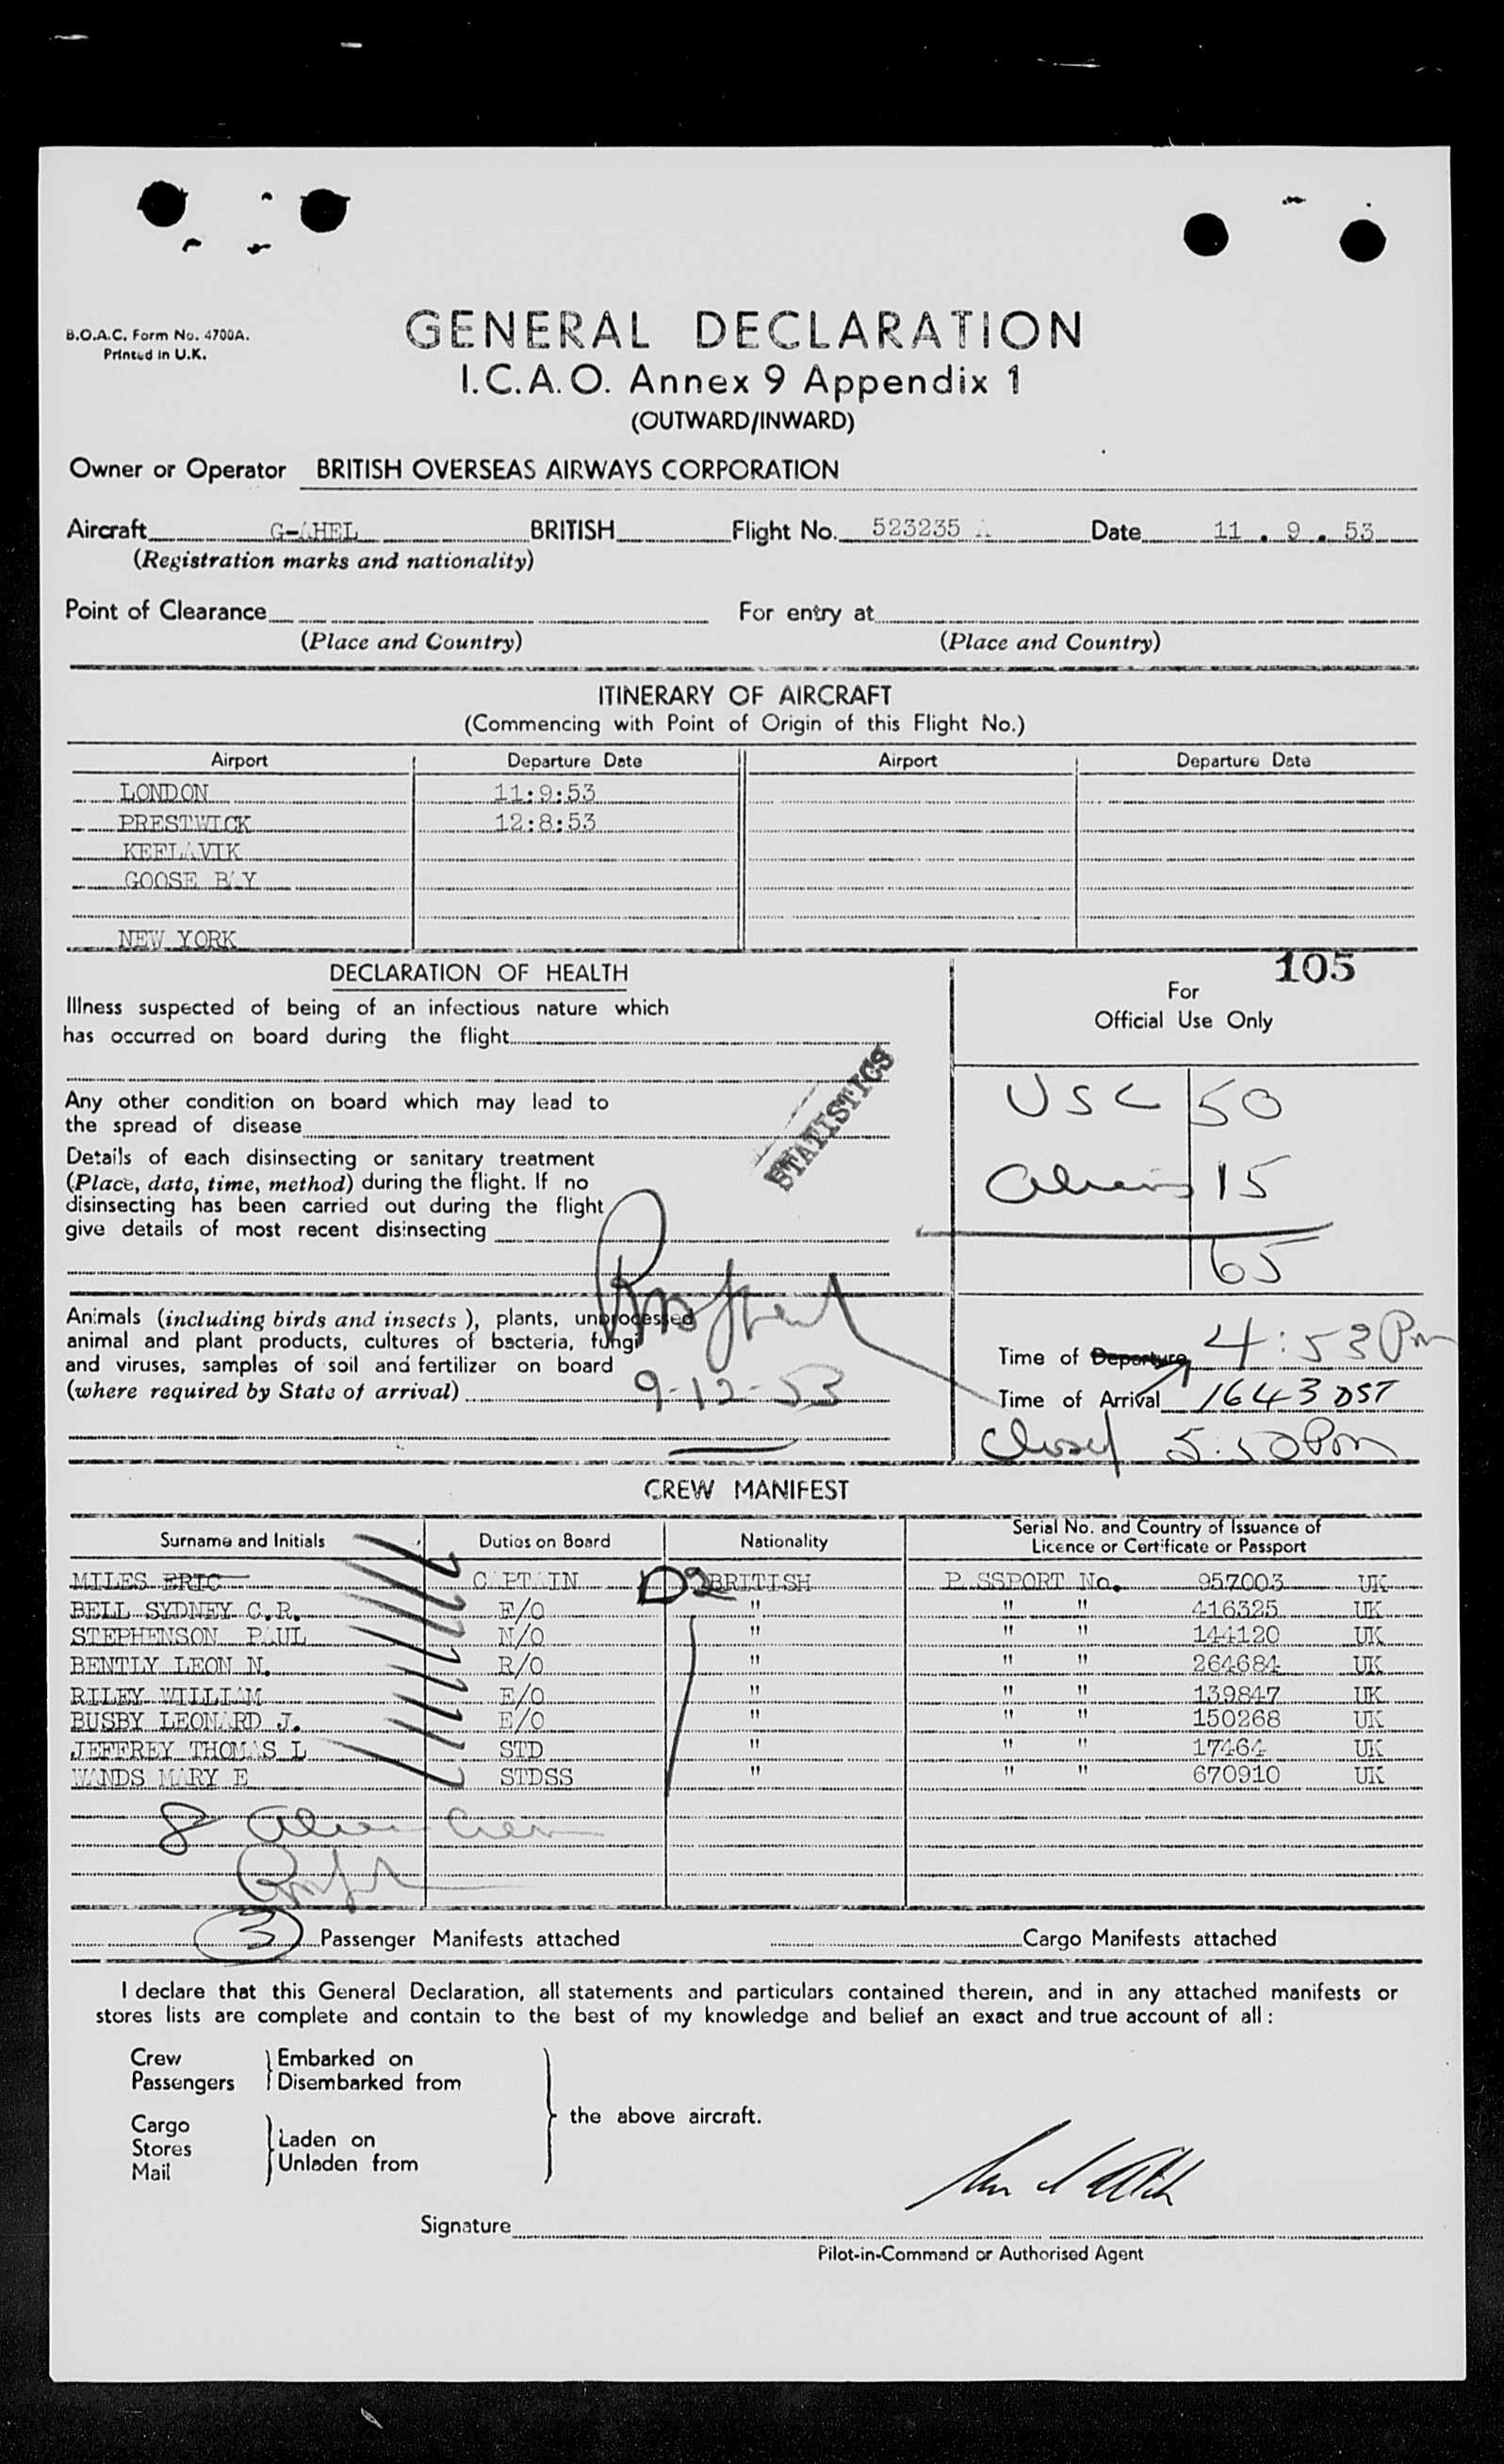 B.O.A.C. Form No. 4700A.
Printed in U.K.
GENERAL DECLARATION
I.C.A.O. Annex 9 Appendix 1
(OUTWARD/INWARD)
Owner or Operator BRITISH OVERSEAS AIRWAYS CORPORATION
Aircraft G-AHEL BRITISH Flight No. 523235 A Date 11 . 9 . 53
(Registration marks and nationality)
Point of Clearance For entry at
(Place and Country) (Place and Country)
ITINERARY OF AIRCRAFT
(Commencing with Point of Origin of this Flight No.)
Airport Departure Date Airport Departure Date
LONDON 11:9:53
PRESTWICK 12:8:53
KEFLAVIK
GOOSE BAY
NEW YORK
105
DECLARATION OF HEALTH
Illness suspected of being of an infectious nature which
has occurred on board during the flight
Any other condition on board which may lead to
the spread of disease
Details of each disinsecting or sanitary treatment
(Place, date, time, method) during the flight. If no
disinsecting has been carried out during the flight
give details of most recent disinsecting
STATISTICS
Animals (including birds and insects), plants, unprocessed
animal and plant products, cultures of bacteria, fungi
and viruses, samples of soil and fertilizer on board
(where required by State of arrival)
9-12-53
For
Official Use Only
USC 50
Aliens 15
65
Time of Departure 4:53 Pm
Time of Arrival 1643 DST
Closed 5:50 Pm
CREW MANIFEST
Surname and Initials Duties on Board Nationality Serial No. and Country of Issuance of
Licence or Certificate or Passport
MILES ERIC CAPTAIN D2 BRITISH PASSPORT No. 957003 UK
BELL SYDNEY C.R. F/O " " " 416325 UK
STEPHENSON PAUL N/O " " " 144120 UK
BENTLY LEON N. R/O " " " 264684 UK
RILEY WILLIAM E/O " " " 139847 UK
BUSBY LEONARD J. E/O " " " 150268 UK
JEFFREY THOMAS L STD " " " 17464 UK
WANDS MARY E STDSS " " " 670910 UK
8 Alien Crew
3 Passenger Manifests attached Cargo Manifests attached
I declare that this General Declaration, all statements and particulars contained therein, and in any attached manifests or
stores lists are complete and contain to the best of my knowledge and belief an exact and true account of all :
Crew
Passengers
Embarked on
Disembarked from
Cargo
Stores
Mail
Laden on
Unladen from
the above aircraft.
Signature
Pilot-in-Command or Authorised Agent